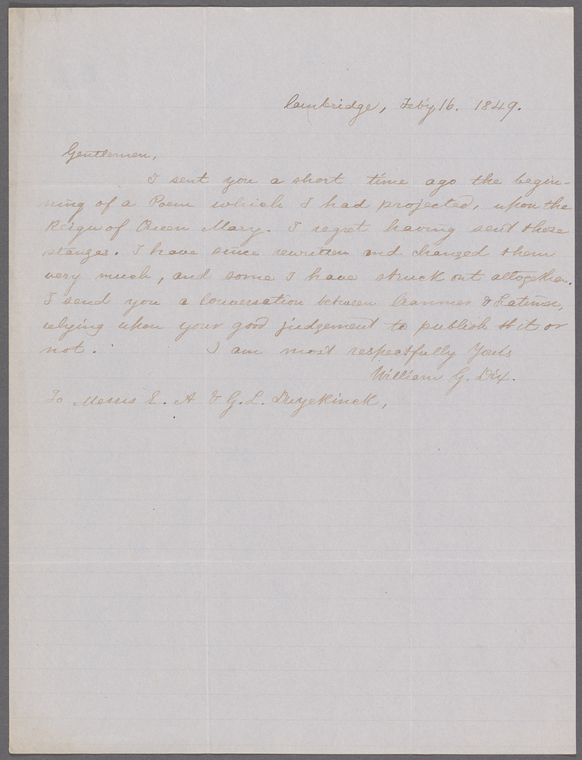 Cambridge, Feb'y 16. 1849.
Gentlemen,
I sent you a short time ago the begin-
ning of a Poem which I had projected, upon the
Reign of Queen Mary. I regret having sent those
stanzas. I have since rewritten and changed them
very much, and some I have struck out altogether.
I send you a Conversation between Cranmer & Latimer,
relying upon your good judgement to publish it or
not. I am most respectfully Yours
William G. Dix.
To Messrs E. A & G. L. Duyckinck,